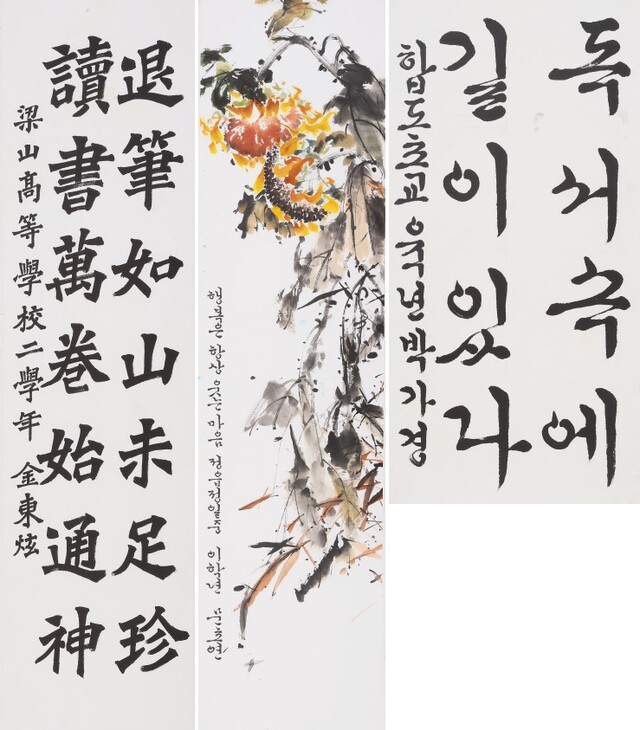 退筆如山未足珍
讀書萬卷始通神
梁山高等學校二學年 金東炫
행복은 항상 웃는 마음 이학년
독서속에
길이있다
합도초교 육년박가경